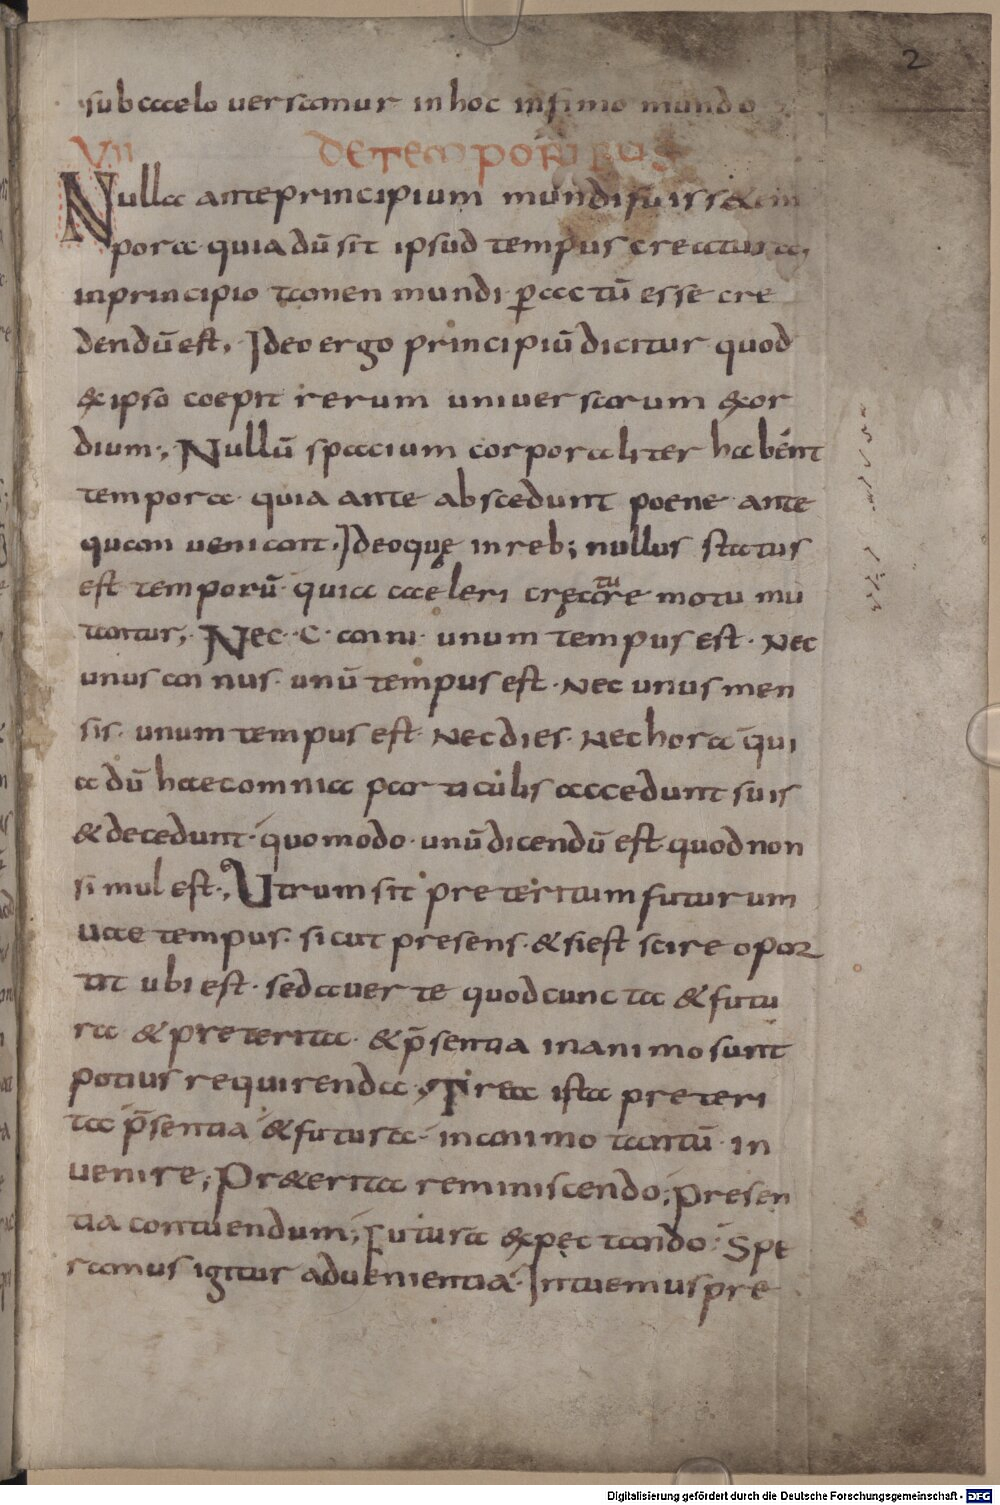 2
sub caelo versamur in hoc infimo mundo
VII DE TEMPORIBUS
Nulla ante principium mundi fuisse tem
pora quia dū sit ipsud tempus creatura,
in principio tamen mundi p̱ actū esse cre
dendū est. Ideo ergo principiū dicitur quod
& ipso coepit rerum universarum exor
dium; Nullū spacium corporaliter habent
tempora quia ante abscedunt poene ante
quam veniant. Ideoquę in reb; nullus status
est temporū quia caeleri cręaturę motu mu
tantur; Nec C anni unum tempus est. Nec
unus annus unū tempus est. Nec unus men
sis unum tempus est Nec dies. Nec hora qui
a dū haec omnia particulis accedunt suis
& decedunt quomodo unū dicendū est quod non
simul est; Utrum sit preteritum futurum
vae tempus sicut presens & si est scire opor
tet ubi est. sed averte quod cuncta & futu
ra & preterita & p̄sentia in animo sunt
potius requirenda; Tirea ista preteri
ta p̄sentia & futura in animo tantū in
venire; Praeterita reminiscendo; presen
tia contuendum; futura expectando. Spe
ramus igitur advenientia. Intuemus pre
Digitalisierung gefördert durch die Deutsche Forschungsgemeinschaft - DFG